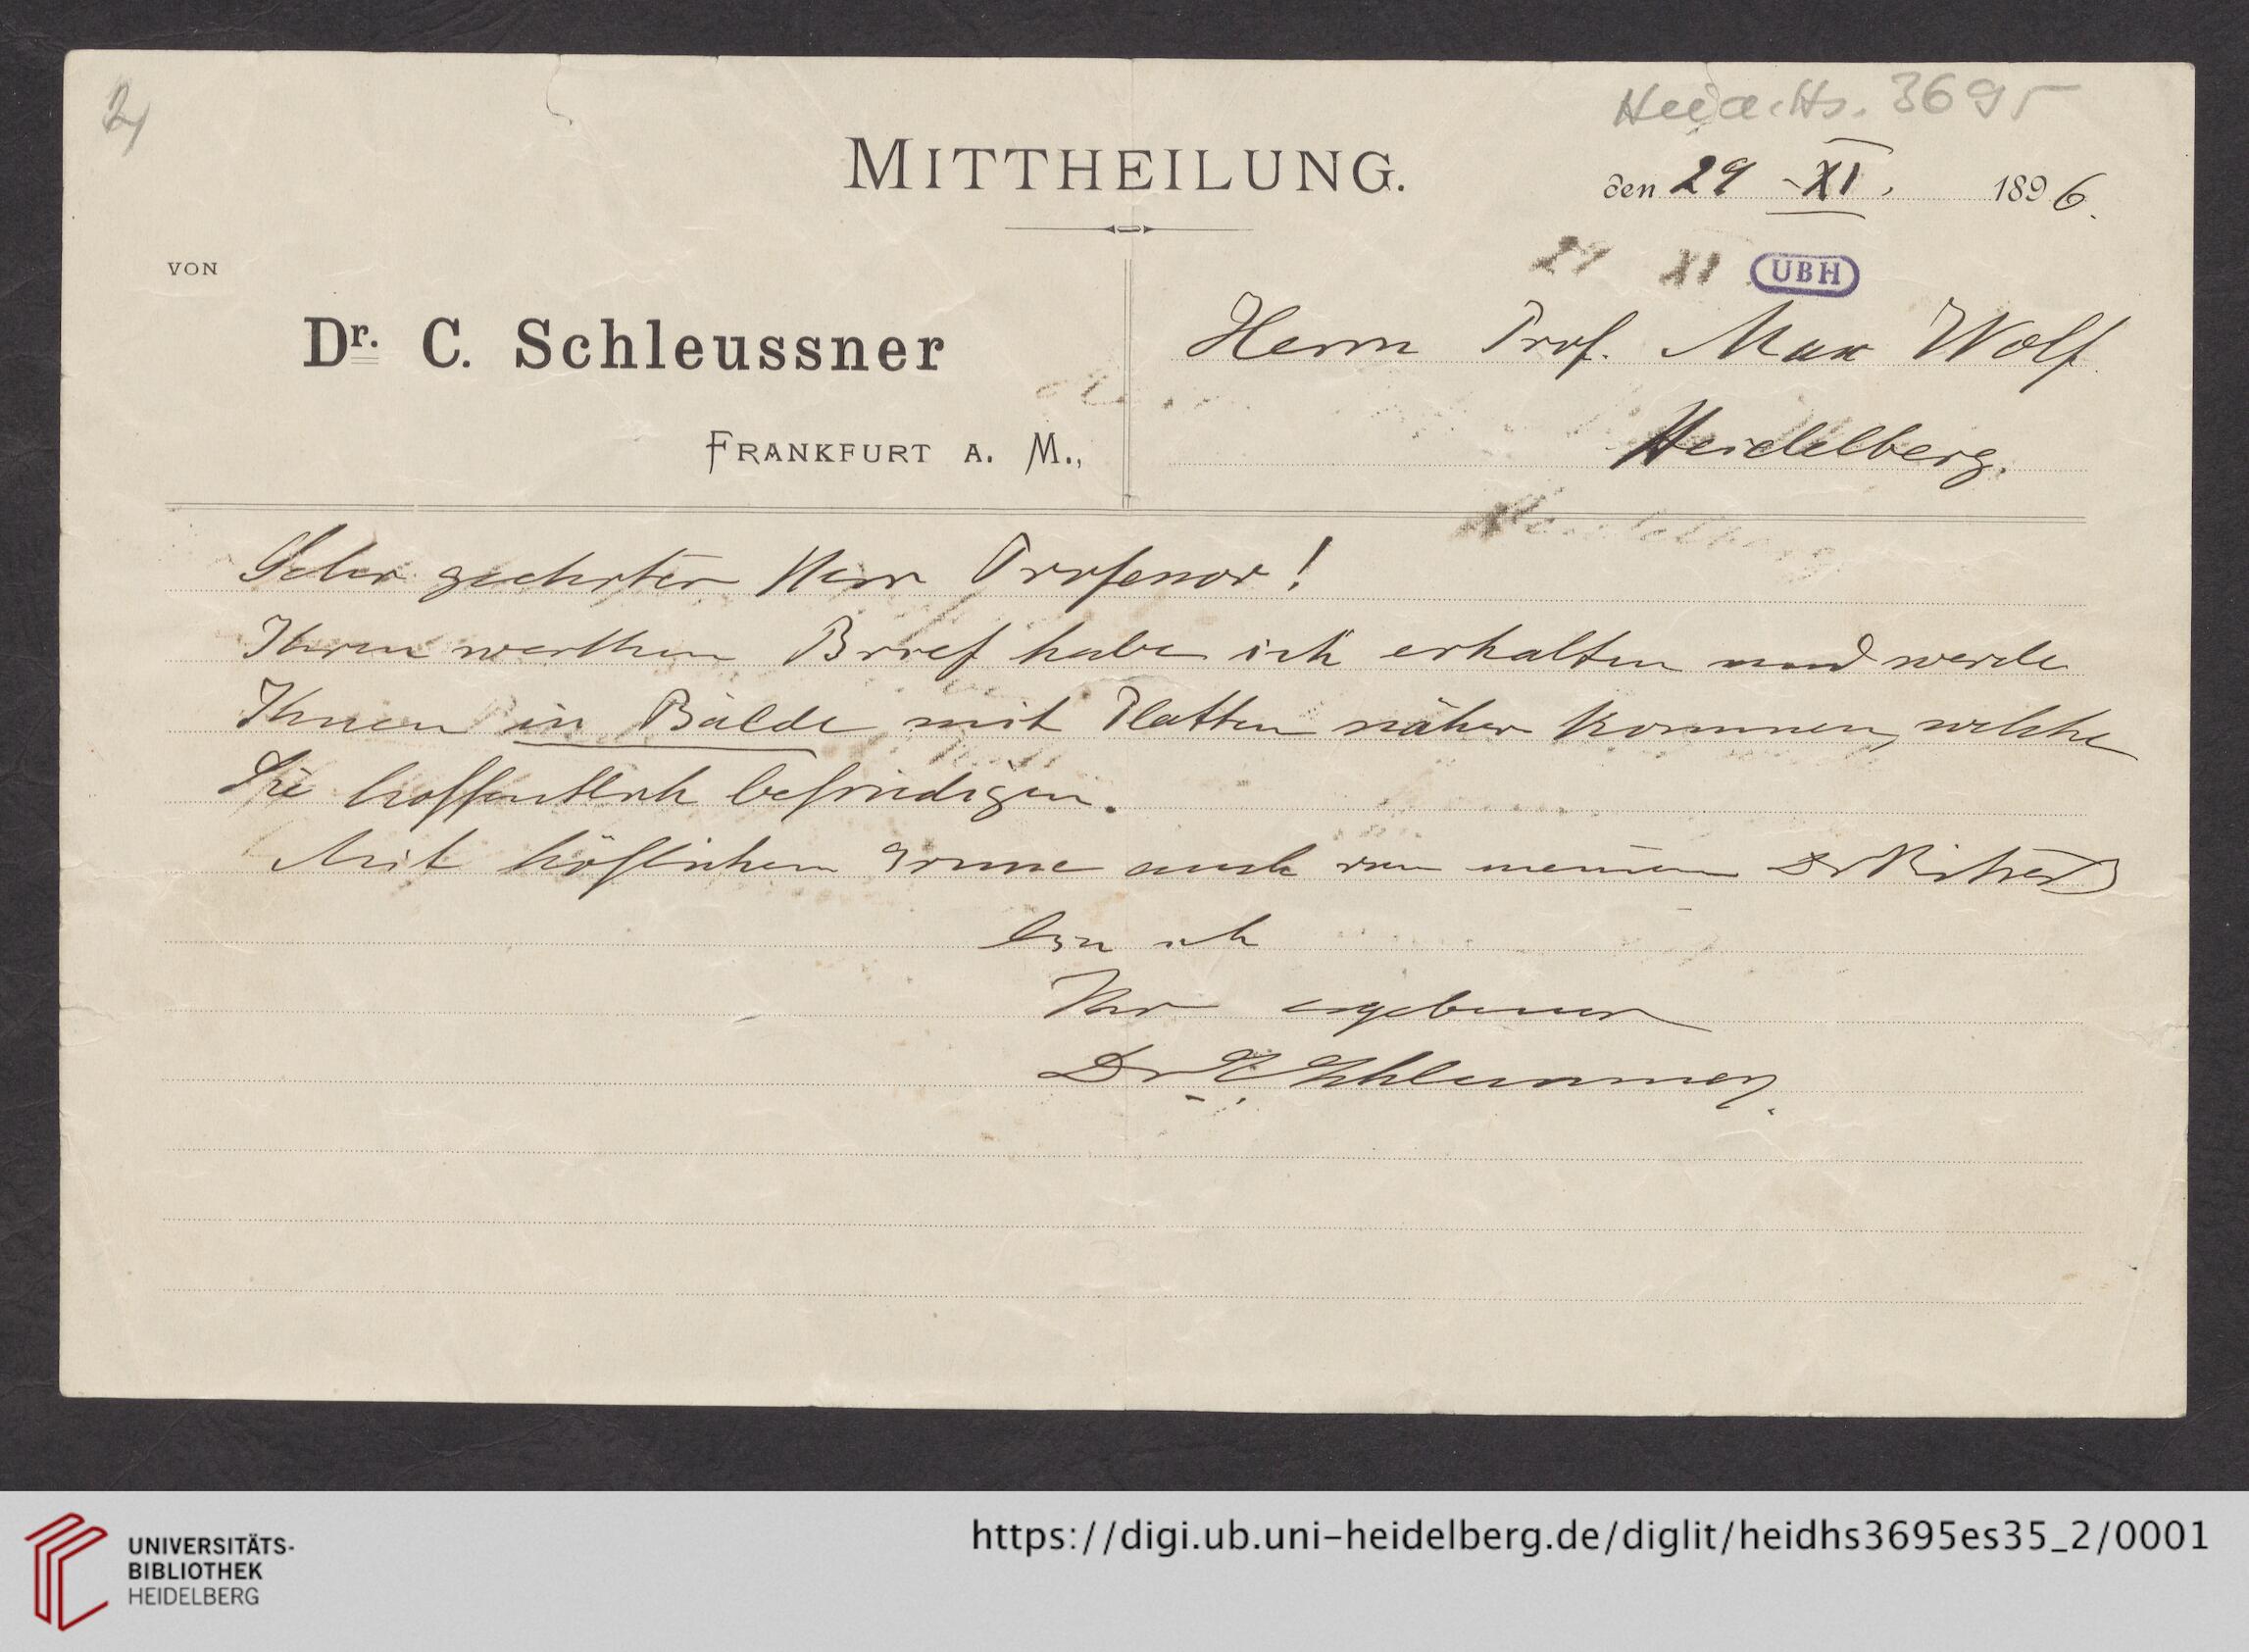 2)
Heid. Hs. 3695
MITTHEILUNG.
den 29 - XI. 1896.
VON
UBH
Dr. C. Schleussner
Herrn Prof. Max Wolf
FRANKFURT A. M.,
Heidelberg.
Sehr geehrter Herr Professor!
Ihren werthen Brief habe ich erhalten und werde
Ihnen in Bälde mit Platten näher kommen, welche
Sie hoffentlich befriedigen.
Mit höflichem Grusse auch von meinem Dr
bin ich
Ihr ergebener
Dr C Schleussner.
UNIVERSITÄTS-
BIBLIOTHEK
HEIDELBERG
https://digi.ub.uni-heidelberg.de/diglit/heidhs3695es35_2/0001